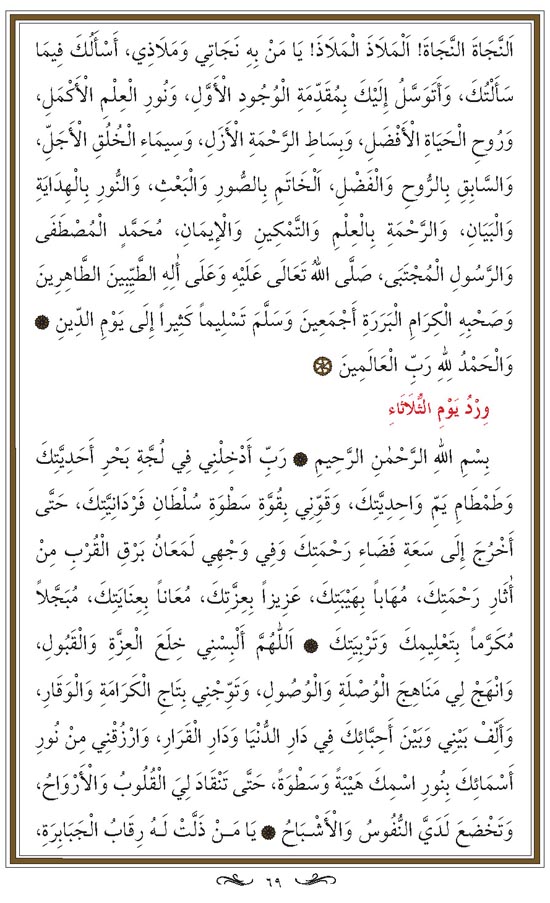 اَلنَّجَاةَ النَّجَاةَ! اَلْمَلَاذَ الْمَلَاذَ! يَا مَنْ بِهِ نَجَاتِي وَمَلَاذِي، أَسْأَلُكَ فِيمَا
سَأَلْتُكَ، وَأَتَوَسَّلُ إِلَيْكَ بِمُقَدِّمَةِ الْوُجُودِ الْأَوَّلِ، وَنُورِ الْعِلْمِ الْأَكْمَلِ،
وَرُوحِ الْحَيَاةِ الْأَفْضَلِ، وَبِسَاطِ الرَّحْمَةِ الْأَزَلِ، وَسِيمَاءِ الْخُلُقِ الْأَجَلِّ،
وَالسَّابِقِ بِالرُّوحِ وَالْفَضْلِ، اَلْخَاتَمِ بِالصُّورِ وَالْبَعْثِ، وَالنُّورِ بِالْهِدَايَةِ
وَالْبَيَانِ، وَالرَّحْمَةِ بِالْعِلْمِ وَالتَّمْكِينِ وَالْإِيمَانِ، مُحَمَّدٍ الْمُصْطَفَى
وَالرَّسُولِ الْمُجْتَبَى، صَلَّى اللهُ تَعَالَى عَلَيْهِ وَعَلَى أٰلِهِ الطَّيِّبِينَ الطَّاهِرِينَ
وَصَحْبِهِ الْكِرَامِ الْبَرَرَةِ أَجْمَعِينَ وَسَلَّمَ تَسْلِيماً كَثِيراً إِلَى يَوْمِ الدِّينِ
وَالْحَمْدُ لِلهِ رَبِّ الْعَالَمِينَ
وِرْدُ يَوْمِ الثُّلَاثَاءِ
بِسْمِ اللهِ الرَّحْمٰنِ الرَّحِيمِ رَبِّ أَدْخِلْنِي فِي لُجَّةِ بَحْرِ أَحَدِيَّتِكَ
وَطَمْطَامِ يَمِّ وَاحِدِيَّتِكَ، وَقَوِّنِي بِقُوَّةِ سَطْوَةِ سُلْطَانِ فَرْدَانِيَّتِكَ، حَتَّى
أَخْرُجَ إِلَى سَعَةِ فَضَاءِ رَحْمَتِكَ وَفِي وَجْهِي لَمَعَانُ بَرْقِ الْقُرْبِ مِنْ
أٰثَارِ رَحْمَتِكَ، مُهَاباً بِهَيْبَتِكَ، عَزِيزاً بِعِزَّتِكَ، مُعَاناً بِعِنَايَتِكَ، مُبَجَّلاً
مُكَرَّماً بِتَعْلِيمِكَ وَتَرْبِيَتِكَ اَللّٰهُمَّ أَلْبِسْنِي خِلَعَ الْعِزَّةِ وَالْقَبُولِ،
وَانْهَجْ لِي مَنَاهِجَ الْوُصْلَةِ وَالْوُصُولِ، وَتَوِّجْنِي بِتَاجِ الْكَرَامَةِ وَالْوَقَارِ،
وَأَلِّفْ بَيْنِي وَبَيْنَ أَحِبَّائِكَ فِي دَارِ الدُّنْيَا وَدَارِ الْقَرَارِ، وَارْزُقْنِي مِنْ نُورِ
أَسْمَائِكَ بِنُورِ اسْمِكَ هَيْبَةً وَسَطْوَةً، حَتَّى تَنْقَادَ لِيَ الْقُلُوبُ وَالْأَرْوَاحُ،
وَتَخْضَعَ لَدَيَّ النُّفُوسُ وَالْأَشْبَاحُ يَا مَنْ ذَلَّتْ لَهُ رِقَابُ الْجَبَابِرَةِ،
٦٩